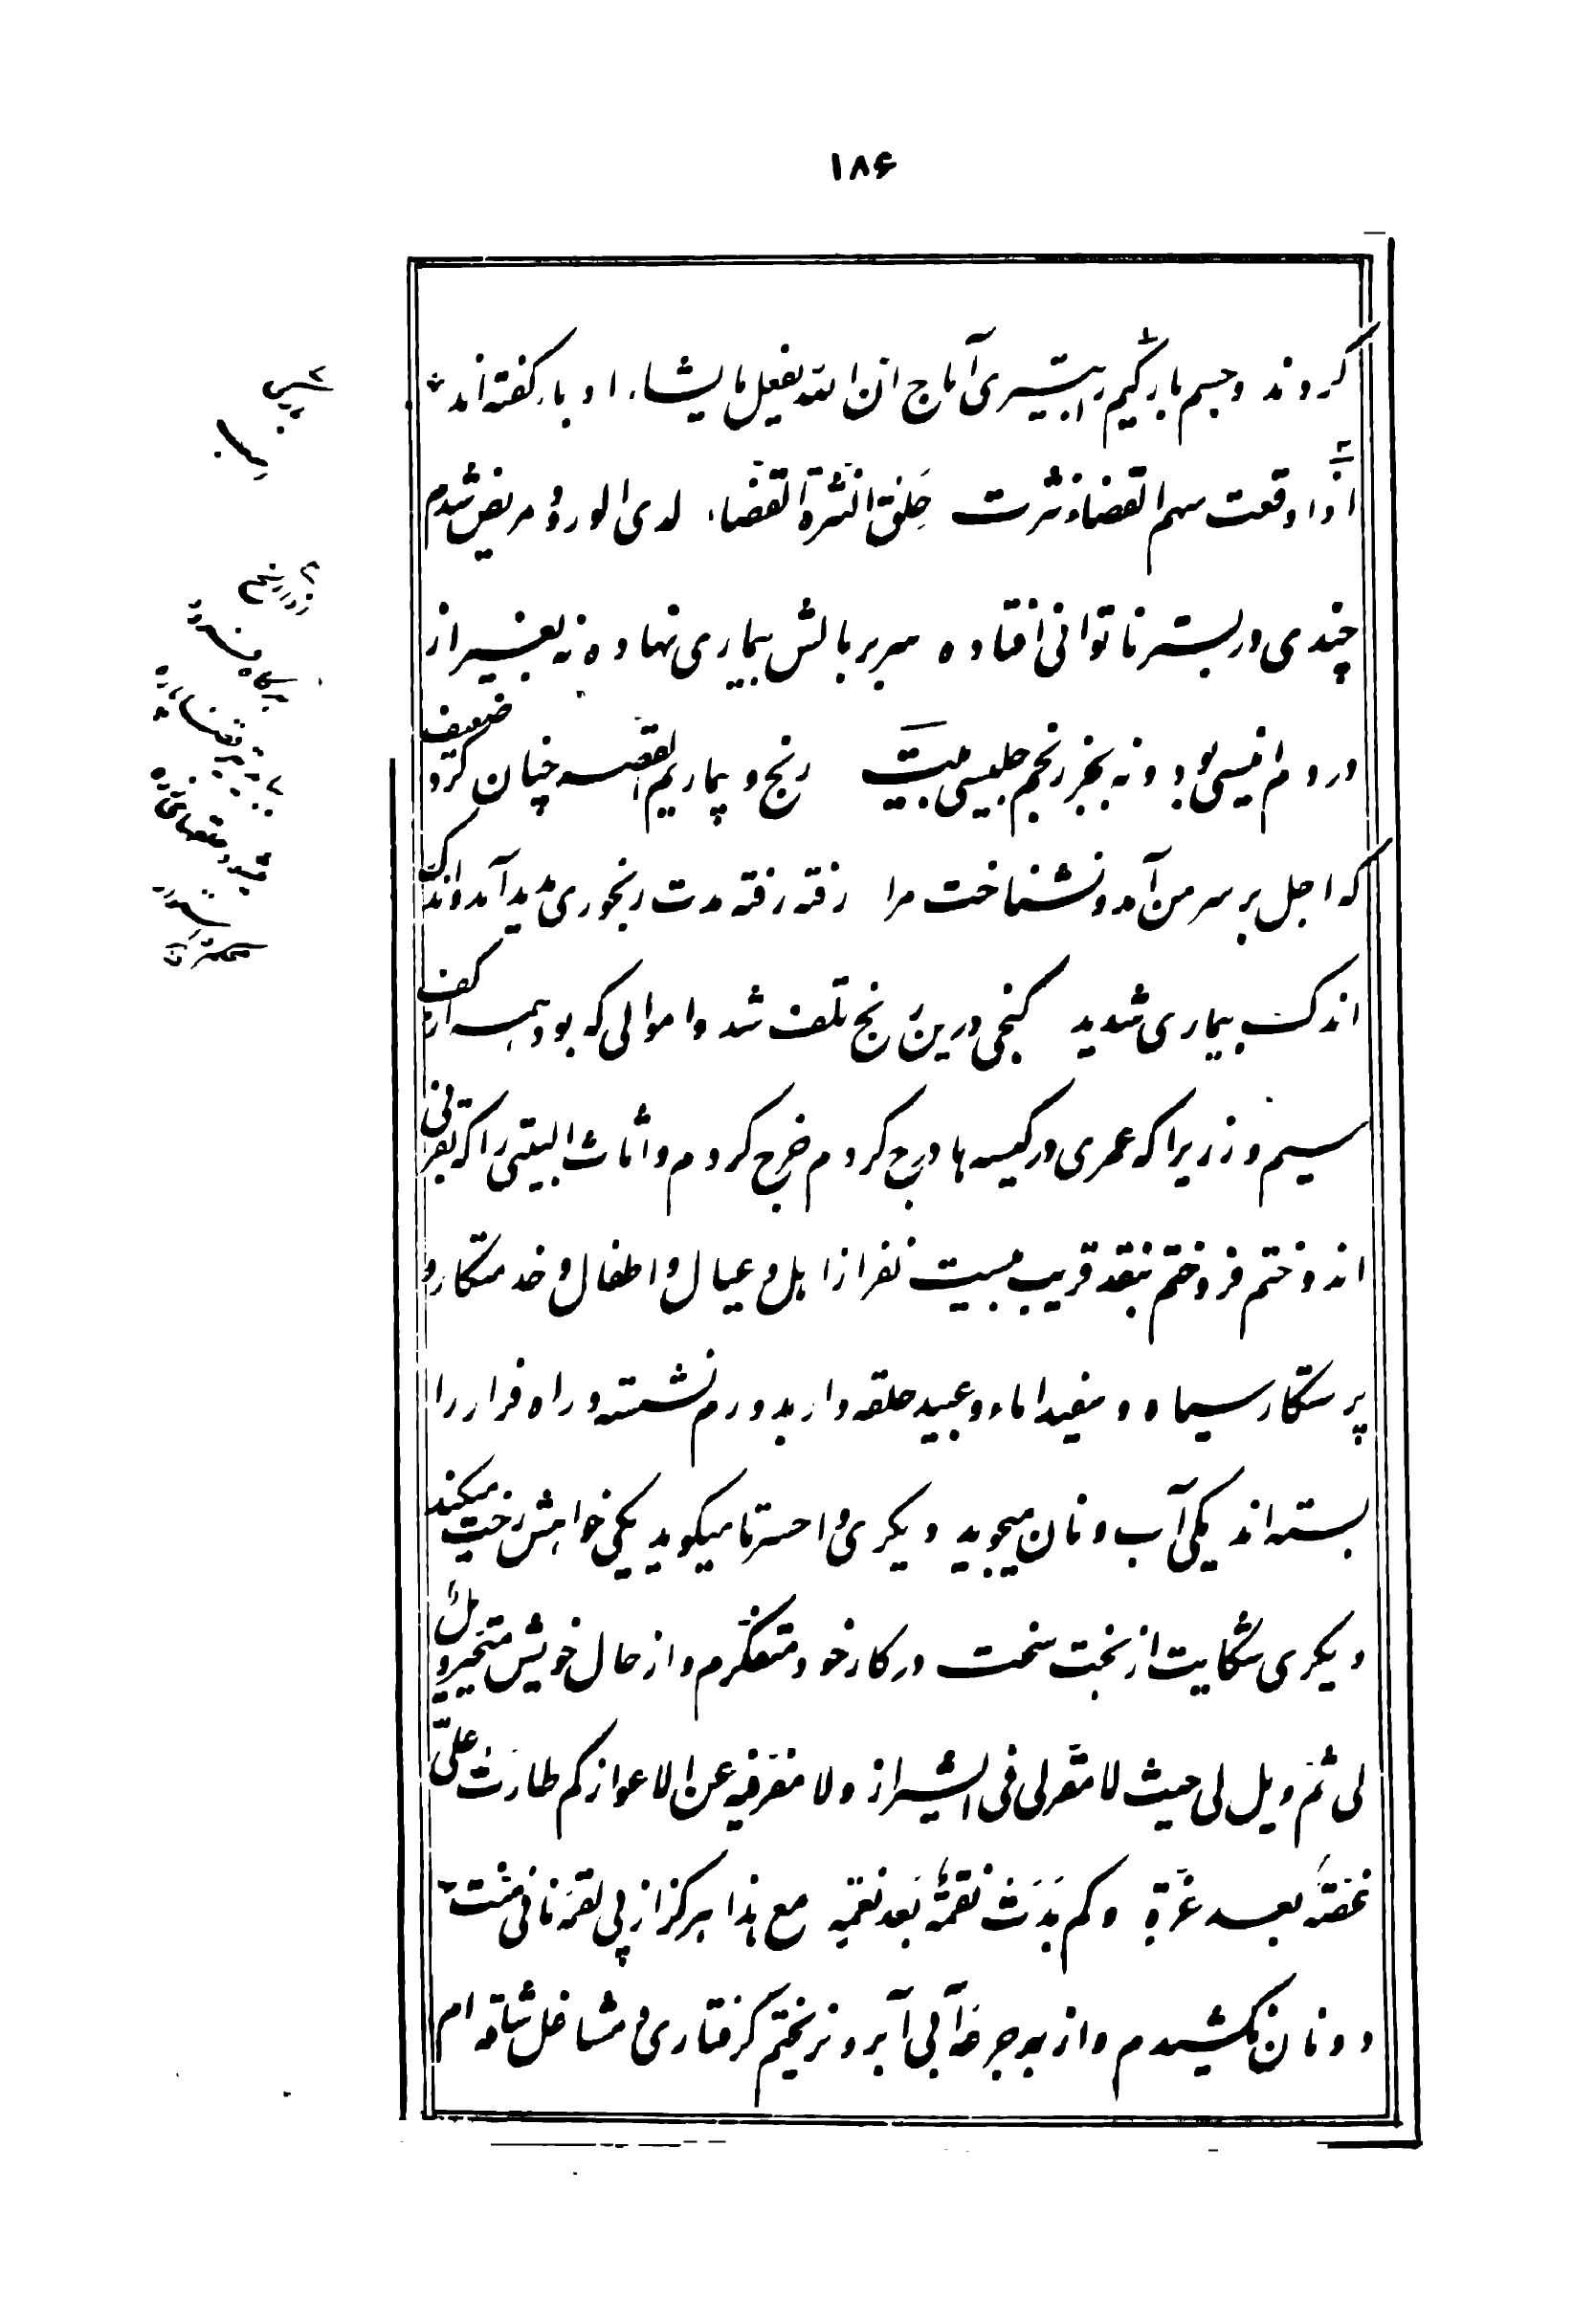 ۱۸۶
کردند و جسم بارگیم را بتیری آماج ان الله یفعل ما یشاء ادبا گفته اند
اذا وقعت سهم القضا نثرت حلق النثرة القضاء لدی الورود مریض شدم
چندی در بستر ناتوانی افتاده سر بر بالش بیماری نهاده نه بغیر از
دردم انیسی بود و نه بجز رنجم جلیسی بیت رنج و بیماریم القصه چنان کرد ضعیف
که اجل بر سر من آمد و نشناخت مرا رفته رفته مدت رنجوری مدید آمد و اندک
اندک بیماری شدید گنجی درین رنج تلف شد و اموالی که بود همه از کف
سیم و زریرا که عمری در کیسه‌ها درج کردم خرج کردم و اثاث البیتی را که بقرنی
اندوختم فروختم بنقد قریب بیست نفر از اهل و عیال و اطفال و خدمتکار و
پرستار سیاه و سفید اماء و عبید حلقه وار بدورم نشسته و راه فرار را
بسته اند یکی آب و نان میجوید دیگری وا حسرتا میگوید یکی خواهش رخت میکند
دیگری شکایت از بخت سخت در کار خود متفکرم و از حال خویش متحیر ویل
لی ثم ویل لی حیث لا مقر لی فی الشیراز ولا مفر فیه عن الاعواز کم طارت علیّ
غصّة بعد غرّة وکم بدت نقمة بعد نعمة مع هذا هرگز از پی لقمه نانی منت
دونان نکشیدم و از بهر جرعه آبی آبرو نریختم گرفتاری و مشاغل شاقه ام